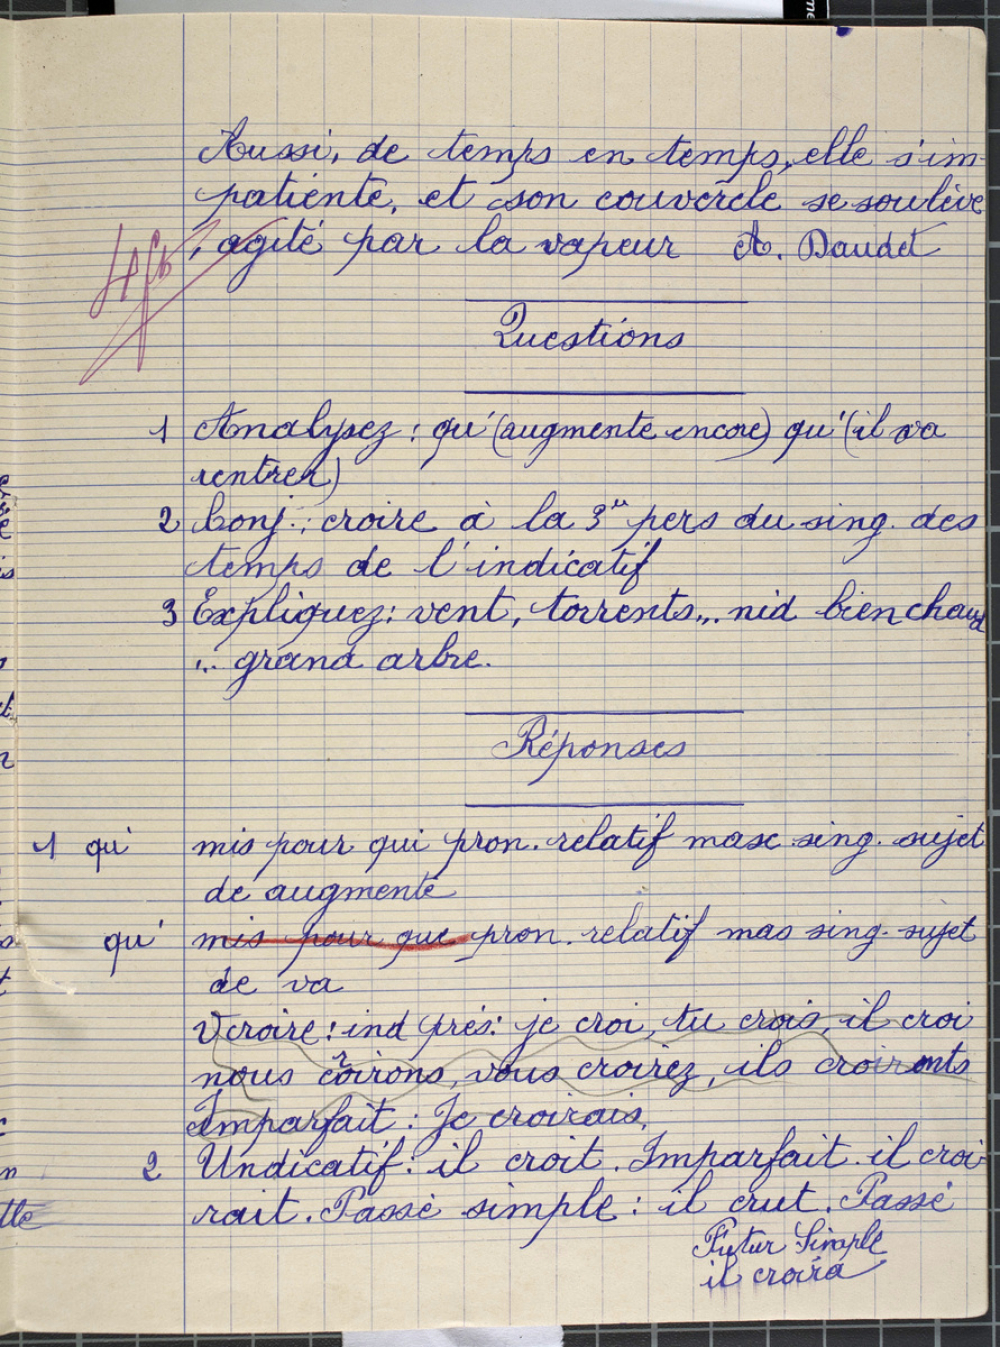 Aussi, de temps en temps, elle s'im-
patiente, et son couvercle se soulève
, agité par la vapeur A. Daudet
Questions
1 Analysez : qu' (augmente encore) qu' (il va
rentrer)
2 Conj. : croire à la 3e pers du sing. des
temps de l'indicatif
3 Expliquez : vent, torrents... nid bien chaud
... grand arbre.
Réponses
1 qu' mis pour qui pron. relatif masc sing. sujet
de augmente
qu' mis pour que pron. relatif mas sing. sujet
de va
V croire : ind prés : je croi, tu crois, il croi
nous croirons, vous croirez, ils croironts
Imparfait : Je croirais,
2 Undicatif : il croit. Imparfait. il croi
rait. Passé simple : il crut. Passé
Futur Simple
il croira